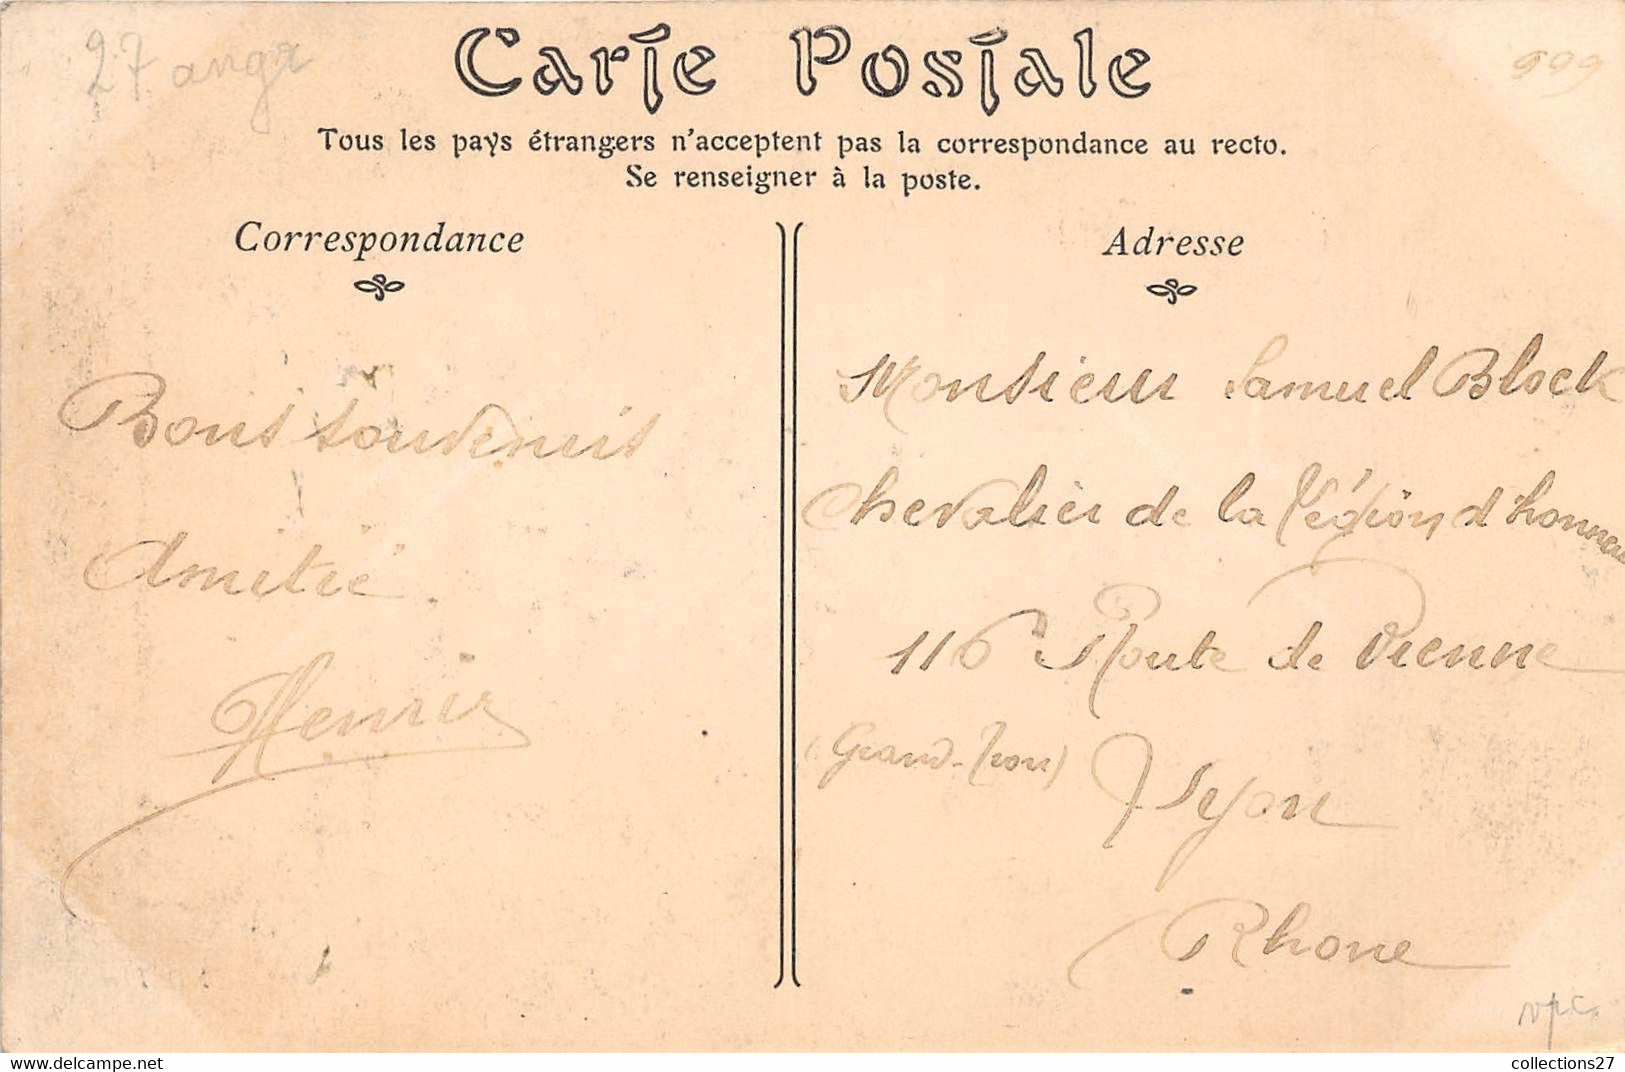 27
Carte Postale
Tous les pays étrangers n'acceptent pas la correspondance au recto.
Se renseigner à la poste.
Correspondance
Adresse
Bons souvenirs
Amitié
Henri
Monsieur Samuel Block
Chevalier de la Légion d'honneur
116 Route de Vienne
(Grand-Trou)
Lyon
Rhone
collections27